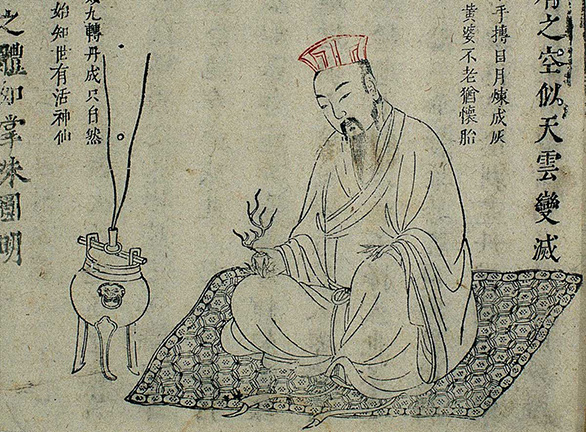 之空似天雲變滅
手摶日月煉成灰
黄婆不老猶懷胎
九轉丹成只自然
始知世有活神仙
之體如掌珠圓明